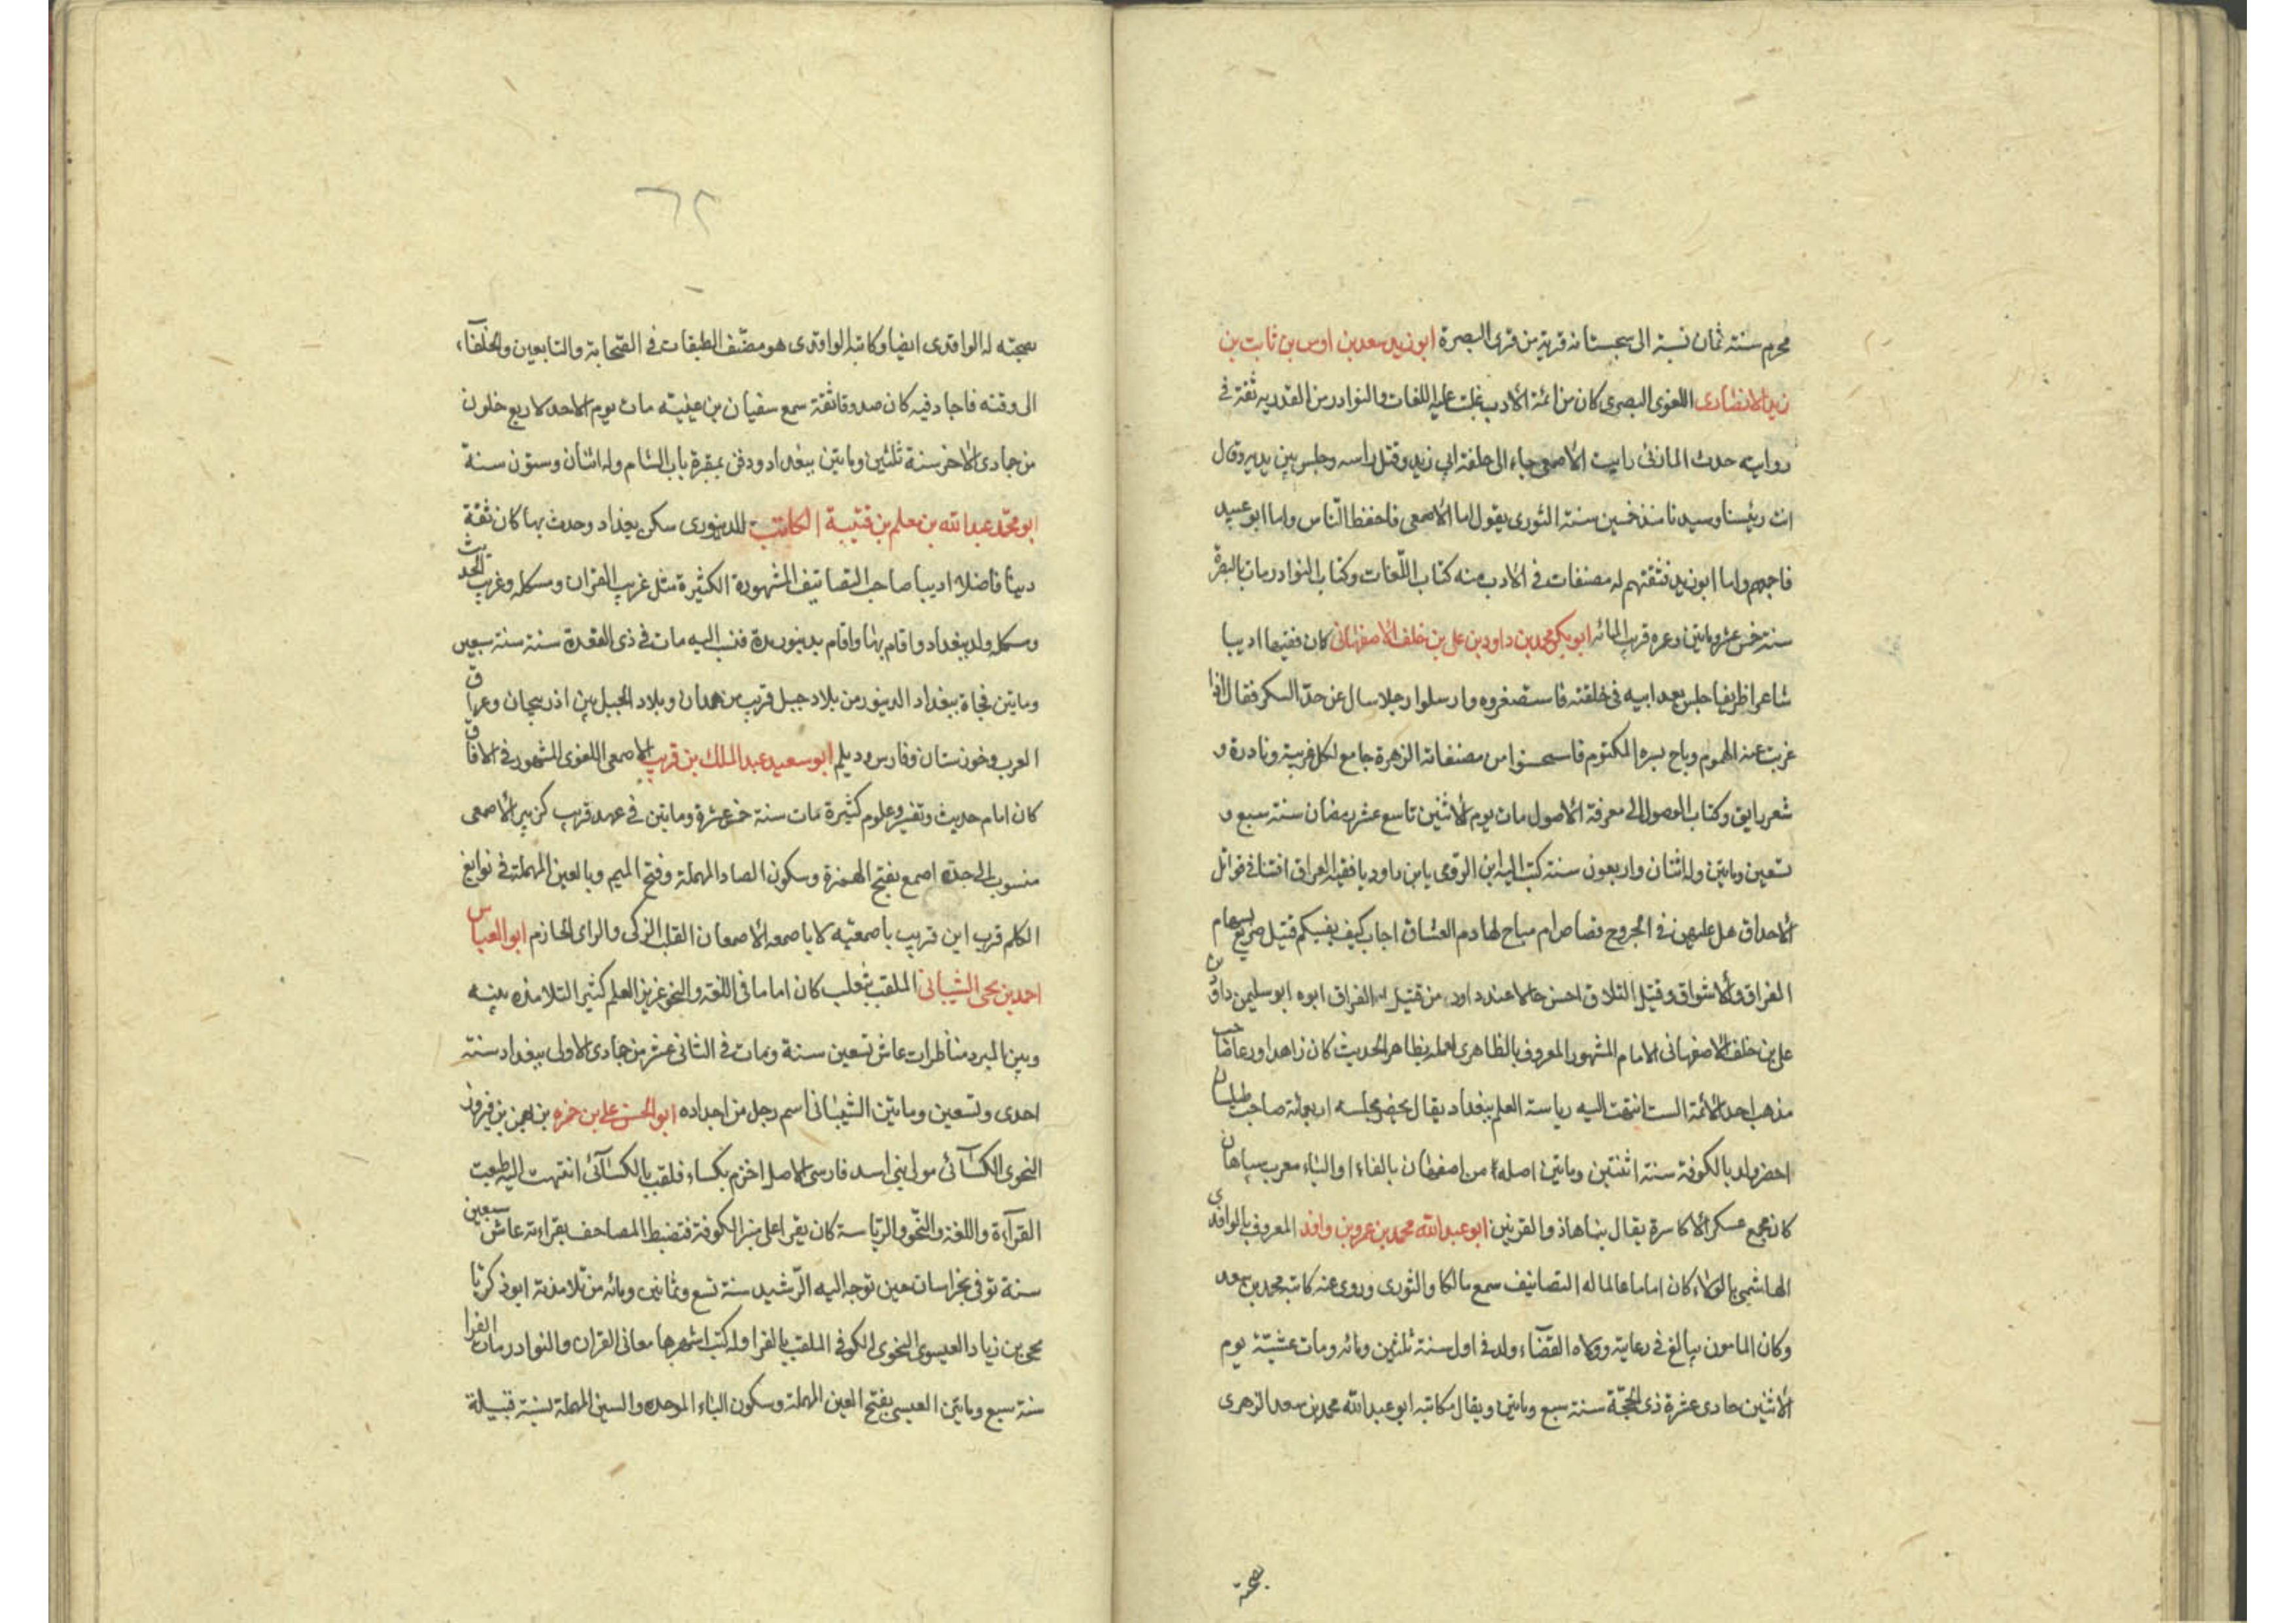 محرم سنة ثمان نسبة الى سجستانه قرية من قرى البصرة ابو زيد سعد بن اوس بن ثابت بن
زيد الانصارى اللغوى البصرى كان من ائمة الادب غلبت عليه اللغات والنوادر من القدريه ثقة فى
روايته حدث المازنى رايت الاصمعى جاء الى حلقة ابى زيد وقبل راسه وجلس بين يديه وقال
انت رئيسنا وسيدنا منذ خمسين سنة الثورى يقول اما الاصمعى فاحفظ الناس واما ابو عبيد
فاجمعهم واما ابو زيد فثقتهم له مصنفات فى الادب منه كتاب اللغات وكتاب النوادر مات بالبصرة
سنة خمس عشر وماتين وعمره قرب المائه ابو بكر محمد بن داود بن على بن خلف الاصفهانى كان فقيها اديبا
شاعرا ظريفا جلس بعد ابيه فى حلقته فاستصغروه وارسلوا رجلا سال عن حد السكر فقال اذا
غربت عنه الهموم وباح بسره المكتوم فاستحسنوا من مصنفاته الزهرة جامع لكل غريبة ونادرة و
شعر رايق وكتاب الوصول الى معرفة الاصول مات يوم الاثنين تاسع عشر رمضان سنة سبع و
تسعين وماتين وله اثنان واربعون سنة كتب اليه ابن الرومى يا بن داود يا فقيه العراق افتنا فى قواتل
الاحداق هل عليهن فى الجروح قصاص ام مباح لها دم العشاق اجاب كيف يفتيكم قتيل صريع بسهام
الفراق والاشواق وقتيل التلاق احسن حالا عند داود من قتيل الفراق ابوه ابو سليمن داود بن
على بن خلف الاصفهانى الامام المشهور المعروف بالظاهرى لعمله بظاهر الحديث كان زاهدا ورعا صاحب
مذهب احد الائمة الست انتهت اليه رياسة العلم ببغداد يقال يحضر مجلسه اربعمائة صاحب طيلسان
اخضر ولد بالكوفة سنة اثنتين وماتين اصله من اصفهان بالفاء او الباء معرب سپاهان
كان مجمع عسكر الاكاسرة يقال بناها ذو القرنين ابو عبد الله محمد بن عمرو بن واقد المعروف بالواقدى
الهاشمى بالولاء كان اماما عالما له التصانيف سمع مالكا والثورى وروى عنه كاتبه محمد بن سعد
وكان المامون يبالغ فى رعايته وولاه القضاء ولد فى اول سنة ثلثين ومائه ومات عشية يوم
الاثنين حادى عشرة ذى الحجة سنة سبع وماتين ويقال مكاتبه ابو عبد الله محمد بن سعد الزهرى
بصحبته
٦٢
بصحبته له الواقدى ايضا وكاتب الواقدى هو مصنف الطبقات فى الصحابة والتابعين والخلفاء
الى وقته فاجاد فيه كان صدوقا ثقة سمع سفيان بن عيينه مات يوم الاحد لاربع خلون
من جمادى الاخر سنة ثلثين وماتين ببغداد ودفن بمقبرة باب الشام وله اثنان وستون سنة
ابو محمد عبد الله بن معلم بن قتيبة الكاتب الدينورى سكن بغداد وحدث بها كان ثقة
دينا فاضلا اديبا صاحب التصانيف المشهورة الكثيرة مثل غريب القران ومشكله وغريب الحديث
ومشكله ولد ببغداد واقام بها واقام بدينور مدة فنسب اليه مات فى ذى القعدة سنة سنة سبعين
وماتين فجاة ببغداد الدينور من بلاد جبل قريب من همدان وبلاد الجبل بين اذربيجان وعراق
العرب وخوزستان وفارس وديلم ابو سعيد عبد الملك بن قريب الاصمعى اللغوى المشهور فى الافاق
كان امام حديث وتفسير وعلوم كثيرة مات سنة خمس عشرة وماتين فى عهد قريب كزبير الاصمعى
منسوب الى جده اصمع بفتح الهمزة وسكون الصاد المهملة وفتح الميم وبالعين المهملة فى نوابغ
الكلم قرب ابن قريب باصمعيه لا باصمعه الاصمعان القلب الزكى والراى الحازم ابو العباس
احمد بن يحيى الشيبانى الملقب بثعلب كان اماما فى اللغة والنحو غزيز العلم كثير التلامذه بينه
وبين المبرد مناظرات عاش تسعين سنة ومات فى الثانى عشر من جمادى الاولى ببغداد سنة
احدى وتسعين وماتين الشيبانى اسم رجل من اجداده ابو الحسن على بن حمزه بن بهمن بن فيروز
النحوى الكسائى مولى بنى اسد فارسى الاصل اخرم بكساء فلقب بالكسائى انتهت اليه طبعت
القراءة واللغة والنحو والرياسة كان يقرا على منبر الكوفة فتضبط المصاحف بقراءته عاش سبعين
سنة توفى بخراسان حين توجه اليه الرشيد سنة تسع وثمانين ومائه من تلامذته ابو زكريا
يحيى بن زياد العبسوى النحوى الكوفى الملقب بالفرا وله كتب اشهرها معانى القران والنوادر مات الفرا
سنة سبع وماتين العبسى بفتح العين المهملة وسكون الباء الموحده والسين المهملة نسبة قبيلة